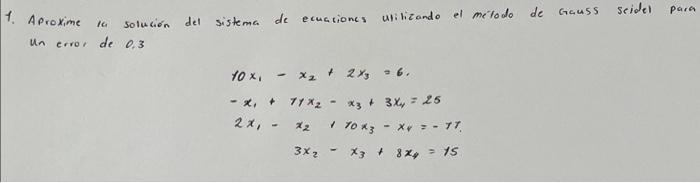 1. Aproxime la solución del sistema de ecuaciones utilizando el método de Gauss seidel para
un error de 0.3
10x₁ - x₂ + 2x₃ = 6.
-x₁ + 11x₂ - x₃ + 3x₄ = 25
2x₁ - x₂ + 10x₃ - x₄ = -11.
3x₂ - x₃ + 8x₄ = 15